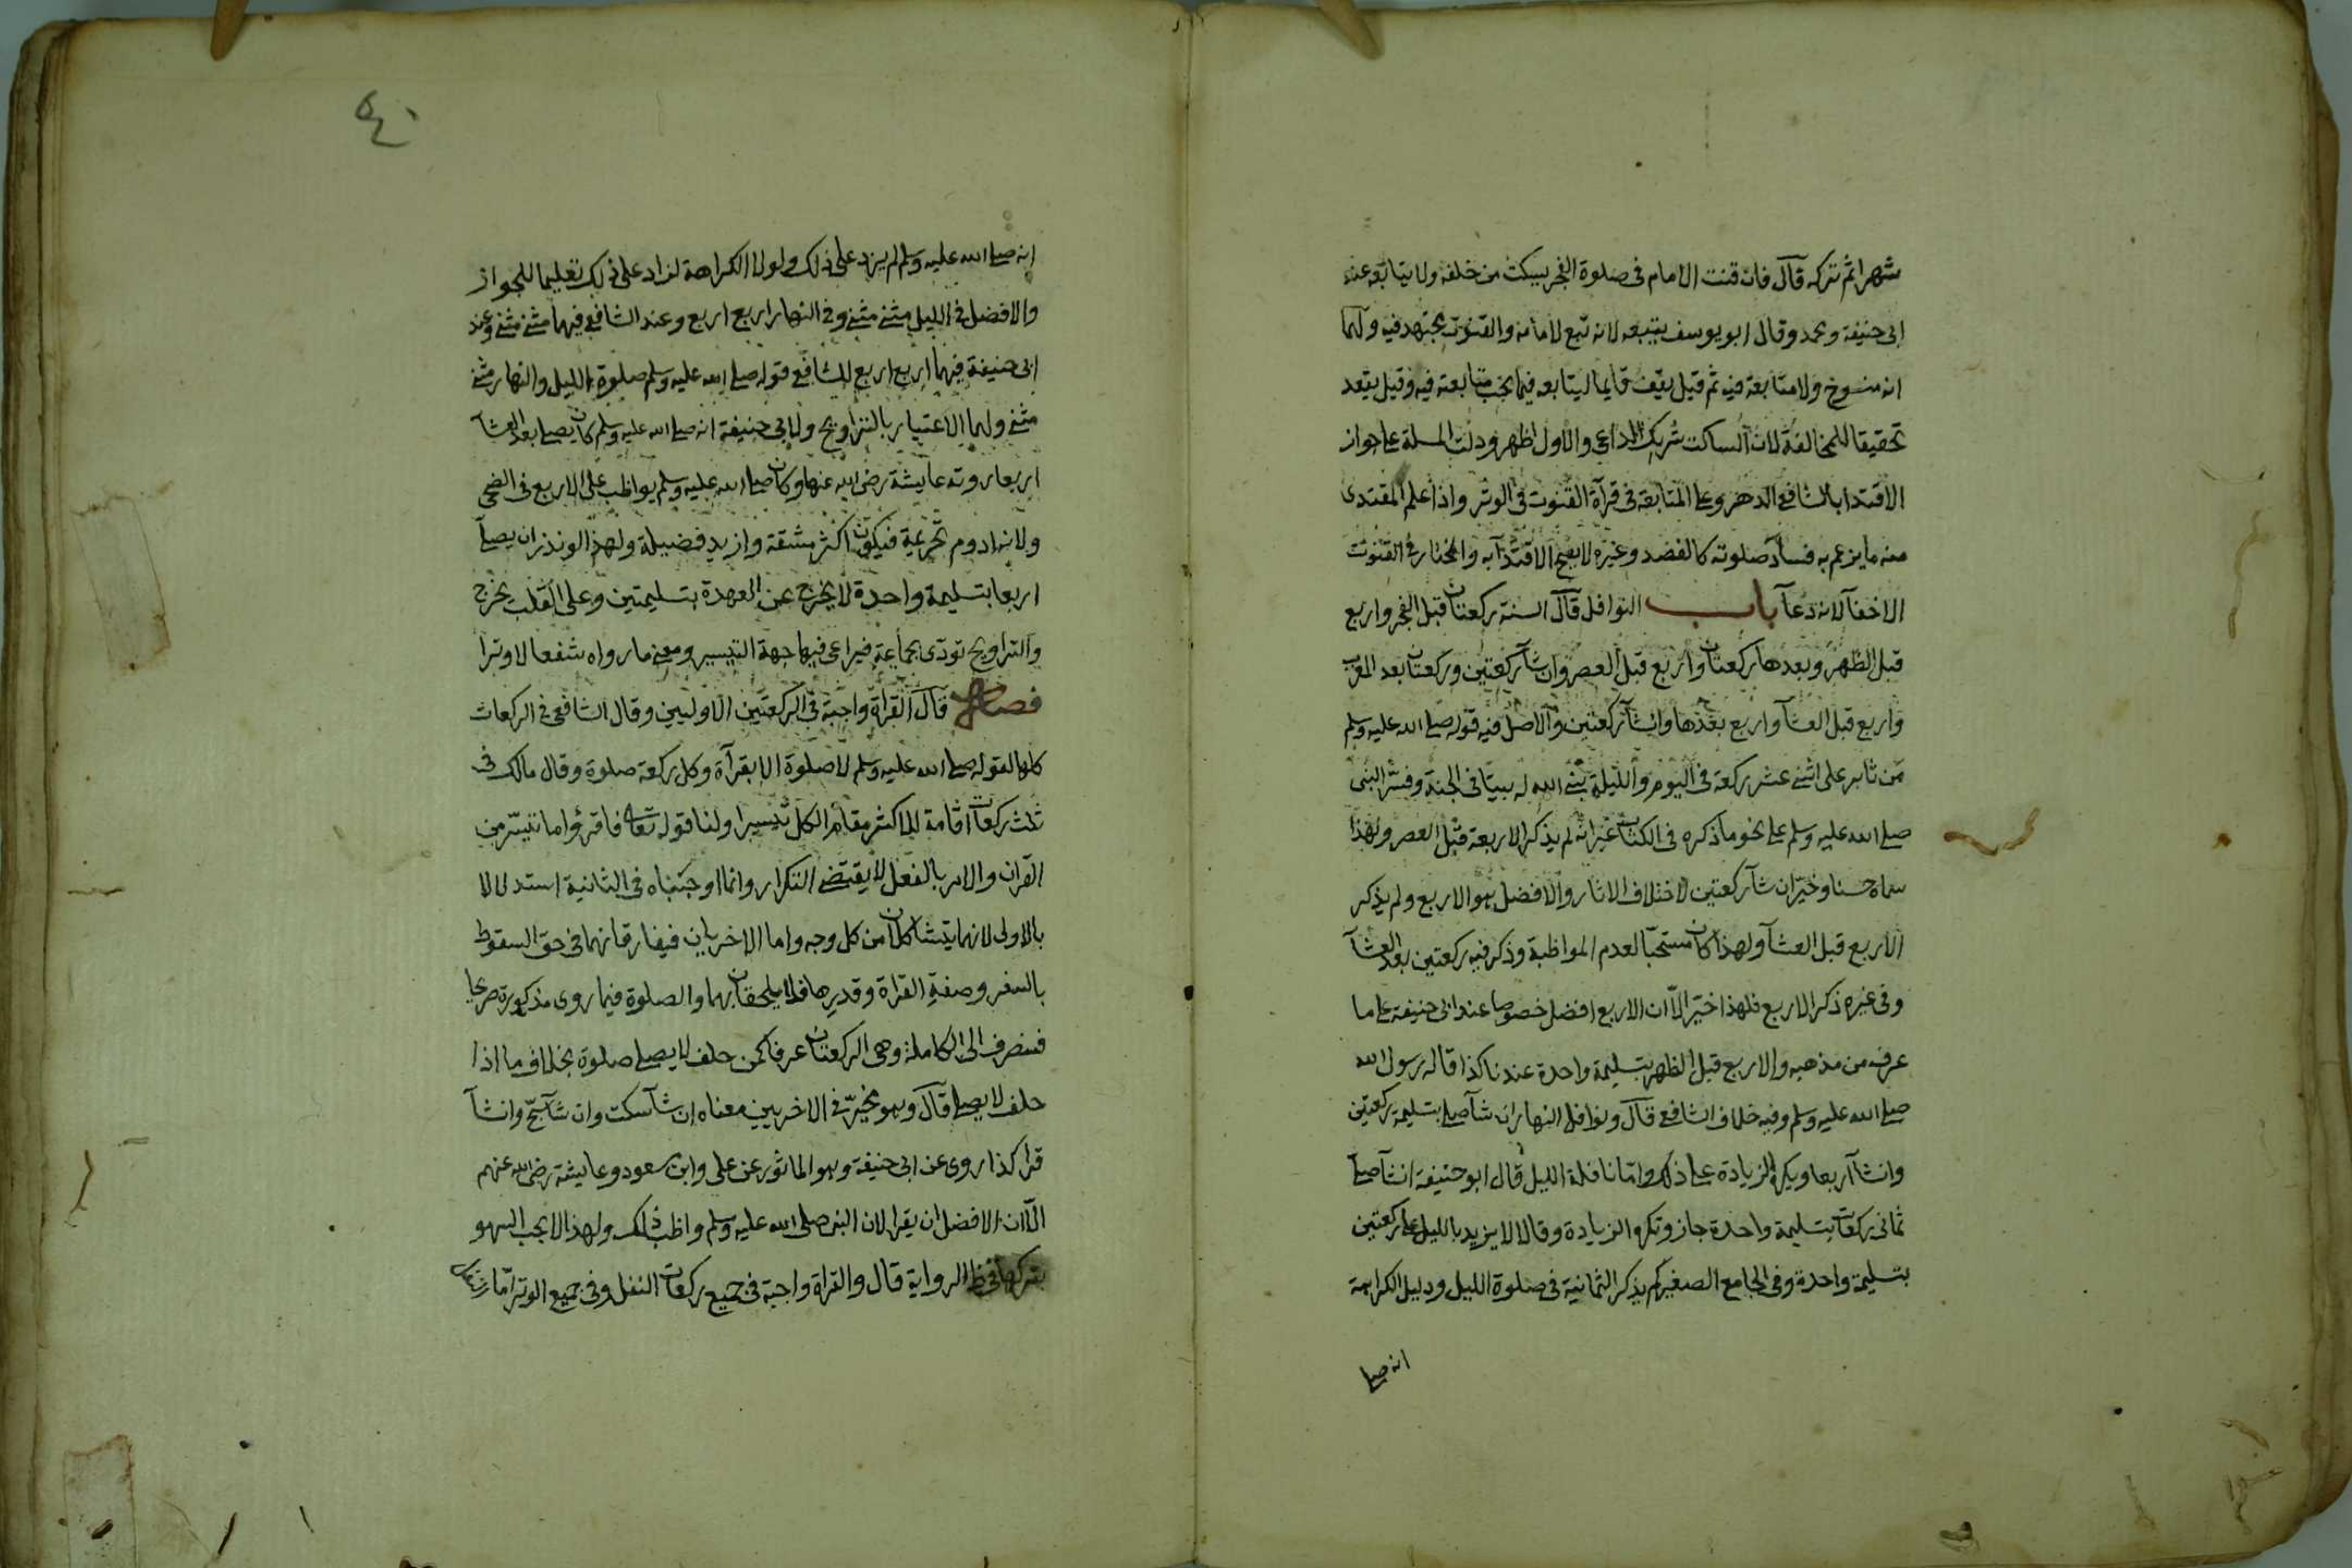 شهرا ثم تركه قال فان قنت الامام فى صلوة الفجر يسكت من خلفه ولا يتابعه عند
ابى حنيفة ومحمد وقال ابو يوسف يتبعه لانه تبع لامامه والقنوت مجتهد فيه ولهما
انه منسوخ ولا متابعة فيه ثم قيل يقف قايما ليتابعه فيما يجب متابعة فيه وقيل يقعد
تحقيقا للمخالفة لان الساكت شريك الداعى والاول اظهر ودلت المسلة على جواز
الاقتدا بالشافع وعلى المتابعة فى قرآة القنوت فى الوتر واذا علم المقتدى
منه ما يزعم به فساد صلوته كالفصد وغيره لا يصح الاقتدآ به والمختار فى القنوت
الاخفآ لانه دعآ باب النوافل قال السنة ركعتان قبل الفجر واربع
قبل الظهر وبعدها ركعتان واربع قبل العصر وان شآ ركعتين وركعتان بعد المغرب
واربع قبل العشآ واربع بعدها وان شآ ركعتين والاصل فيه قوله صلى الله عليه وسلم
من ثابر على اثنى عشر ركعة فى اليوم والليلة بنى الله له بيتا فى الجنة وفسر النبى
صلى الله عليه وسلم على نحو ما ذكره فى الكتاب غير انه لم يذكر الاربعة قبل العصر ولهذا
سماه حسنا وخير ان شآ ركعتين لاختلاف الاثار والافضل هو الاربع ولم يذكر
الاربع قبل العشآ ولهذا كان مستحبا لعدم المواظبة وذكر فيه ركعتين بعد العشآ
وفى غيره ذكر الاربع فلهذا خير الا ان الاربع افضل خصوصا عند ابى حنيفة على ما
عرف من مذهبه والاربع قبل الظهر بتسليمة واحدة عندنا كذا قاله رسول الله
صلى الله عليه وسلم وفيه خلاف الشافعى قال ونوافل النهار ان شآ صلى بتسليمة ركعتين
وان شآ اربعا ويكره الزيادة على ذلك واما نافلة الليل قال ابو حنيفة ان شآ صلى
ثمانى ركعات بتسليمة واحدة جاز وتكره الزيادة وقالا لا يزيد بالليل على ركعتين
بتسليمة واحدة وفى الجامع الصغير لم يذكر الثمانية فى صلوة الليل ودليل الكراهة
انه صلى
٤٠
انه صلى الله عليه وسلم لم يزد على ذلك ولولا الكراهة لزاد على ذلك تعليما للجواز
والافضل فى الليل مثنى مثنى وفى النهار اربع اربع وعند الشافعى فيهما مثنى مثنى وعند
ابى حنيفة فيهما اربع اربع للشافعى قوله صلى الله عليه وسلم صلوة الليل والنهار مثنى
مثنى ولهما الاعتبار بالتراويح ولابى حنيفة انه صلى الله عليه وسلم كان يصلى بعد العشآ
اربعا روته عايشة رضى الله عنها وكان صلى الله عليه وسلم يواظب على الاربع فى الضحى
ولانه ادوم تحريمة فيكون اكثر مشقة وازيد فضيلة ولهذا لو نذر ان يصلى
اربعا بتسليمة واحدة لا يخرج عن العهدة بتسليمتين وعلى القلب يخرج
والتراويح تودى بجماعة فيراعى فيها جهة التيسير ومعنى ما رواه شفعا لا وترا
فصل قال القراة واجبة فى الركعتين الاوليين وقال الشافعى فى الركعات
كلها لقوله صلى الله عليه وسلم لا صلوة الا بقرآة وكل ركعة صلوة وقال مالك فى
ثلث ركعات اقامة للاكثر مقام الكل تيسيرا ولنا قوله تعالى فاقرؤا ما تيسر من
القران والامر بالفعل لا يقتضى التكرار وانما اوجبناه فى الثانية استدلالا
بالاولى لانهما يتشاكلان من كل وجه واما الاخريان فيفارقانهما فى حق السقوط
بالسفر وصفة القراة وقدرها فلا يلحقان بهما والصلوة فيما روى مذكورة صريحا
فتنصرف الى الكاملة وهى الركعتان عرفا كمن حلف لا يصلى صلوة بخلاف ما اذا
حلف لا يصلى قال وهو مخير فى الاخريين معناه ان شآ سكت وان شآ سبح وان شآ
قرا كذا روى عن ابى حنيفة وهو الماثور عن على وابن مسعود وعايشة رضى الله عنهم
الا ان الافضل ان يقرا لان النبى صلى الله عليه وسلم واظب ذلك ولهذا لا يجب السهو
بتركها فى ظ الرواية قال والقراة واجبة فى جميع ركعات النفل وفى جميع الوتر اما